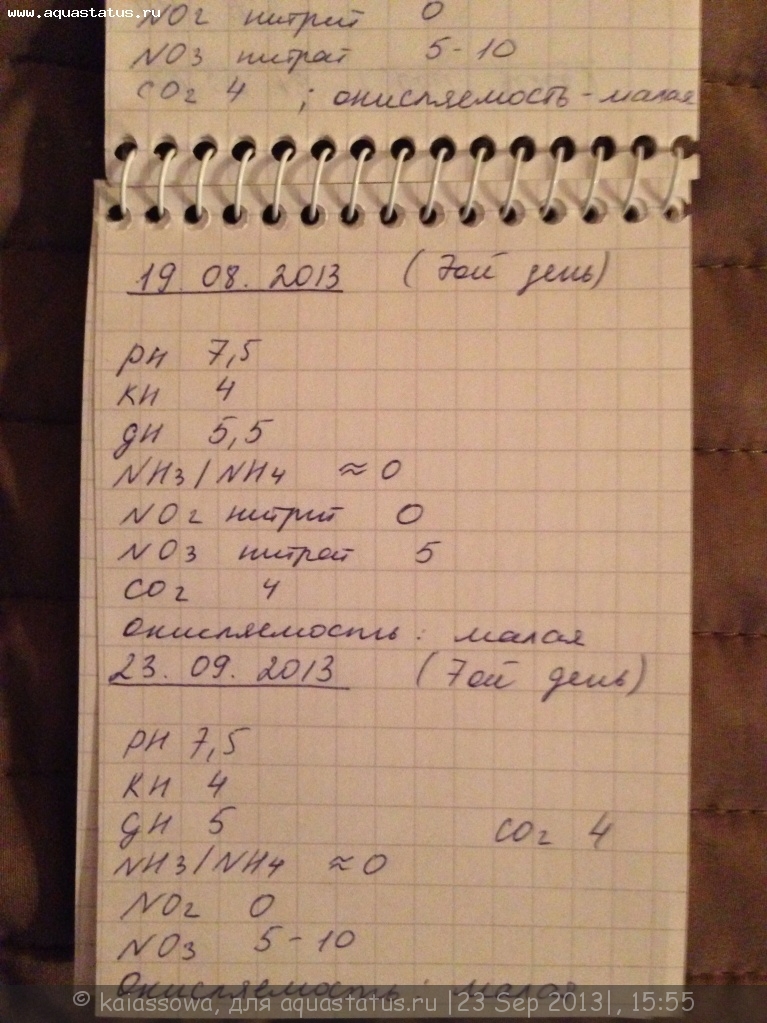 www.aquastatus.ru
NO2 нитрит 0
NO3 нитрат 5-10
CO2 4 ; окисляемость - малая
19.08.2013 (7ой день)
PH 7,5
KH 4
gH 5,5
NH3/NH4 ≈ 0
NO2 нитрит 0
NO3 нитрат 5
CO2 4
окисляемость: малая
23.09.2013 (7ой день)
PH 7,5
KH 4
gH 5 CO2 4
NH3/NH4 ≈ 0
NO2 0
NO3 5-10
окисляемость: малая
© kaiassowa, для aquastatus.ru |23 Sep 2013|, 15:55